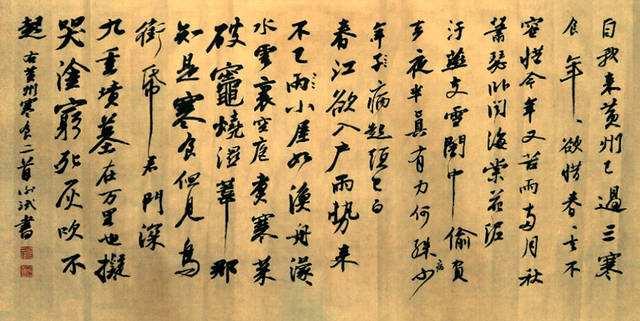 自我来黄州已過三寒
食年、欲惜春、去不
容惜今年又苦雨两月秋
蕭瑟卧闻海棠花泥
汙燕支雪闇中偷負
去夜半真有力何殊少
年子病起頭已白
春江欲入户雨势来
不已雨小屋如漁舟濛
水雲裏空庖煮寒菜
破竈燒湿葦那
知是寒食但見烏
銜帋君門深
九重墳墓在万里也擬
哭塗窮死灰吹不
起
右黄州寒食二首 書